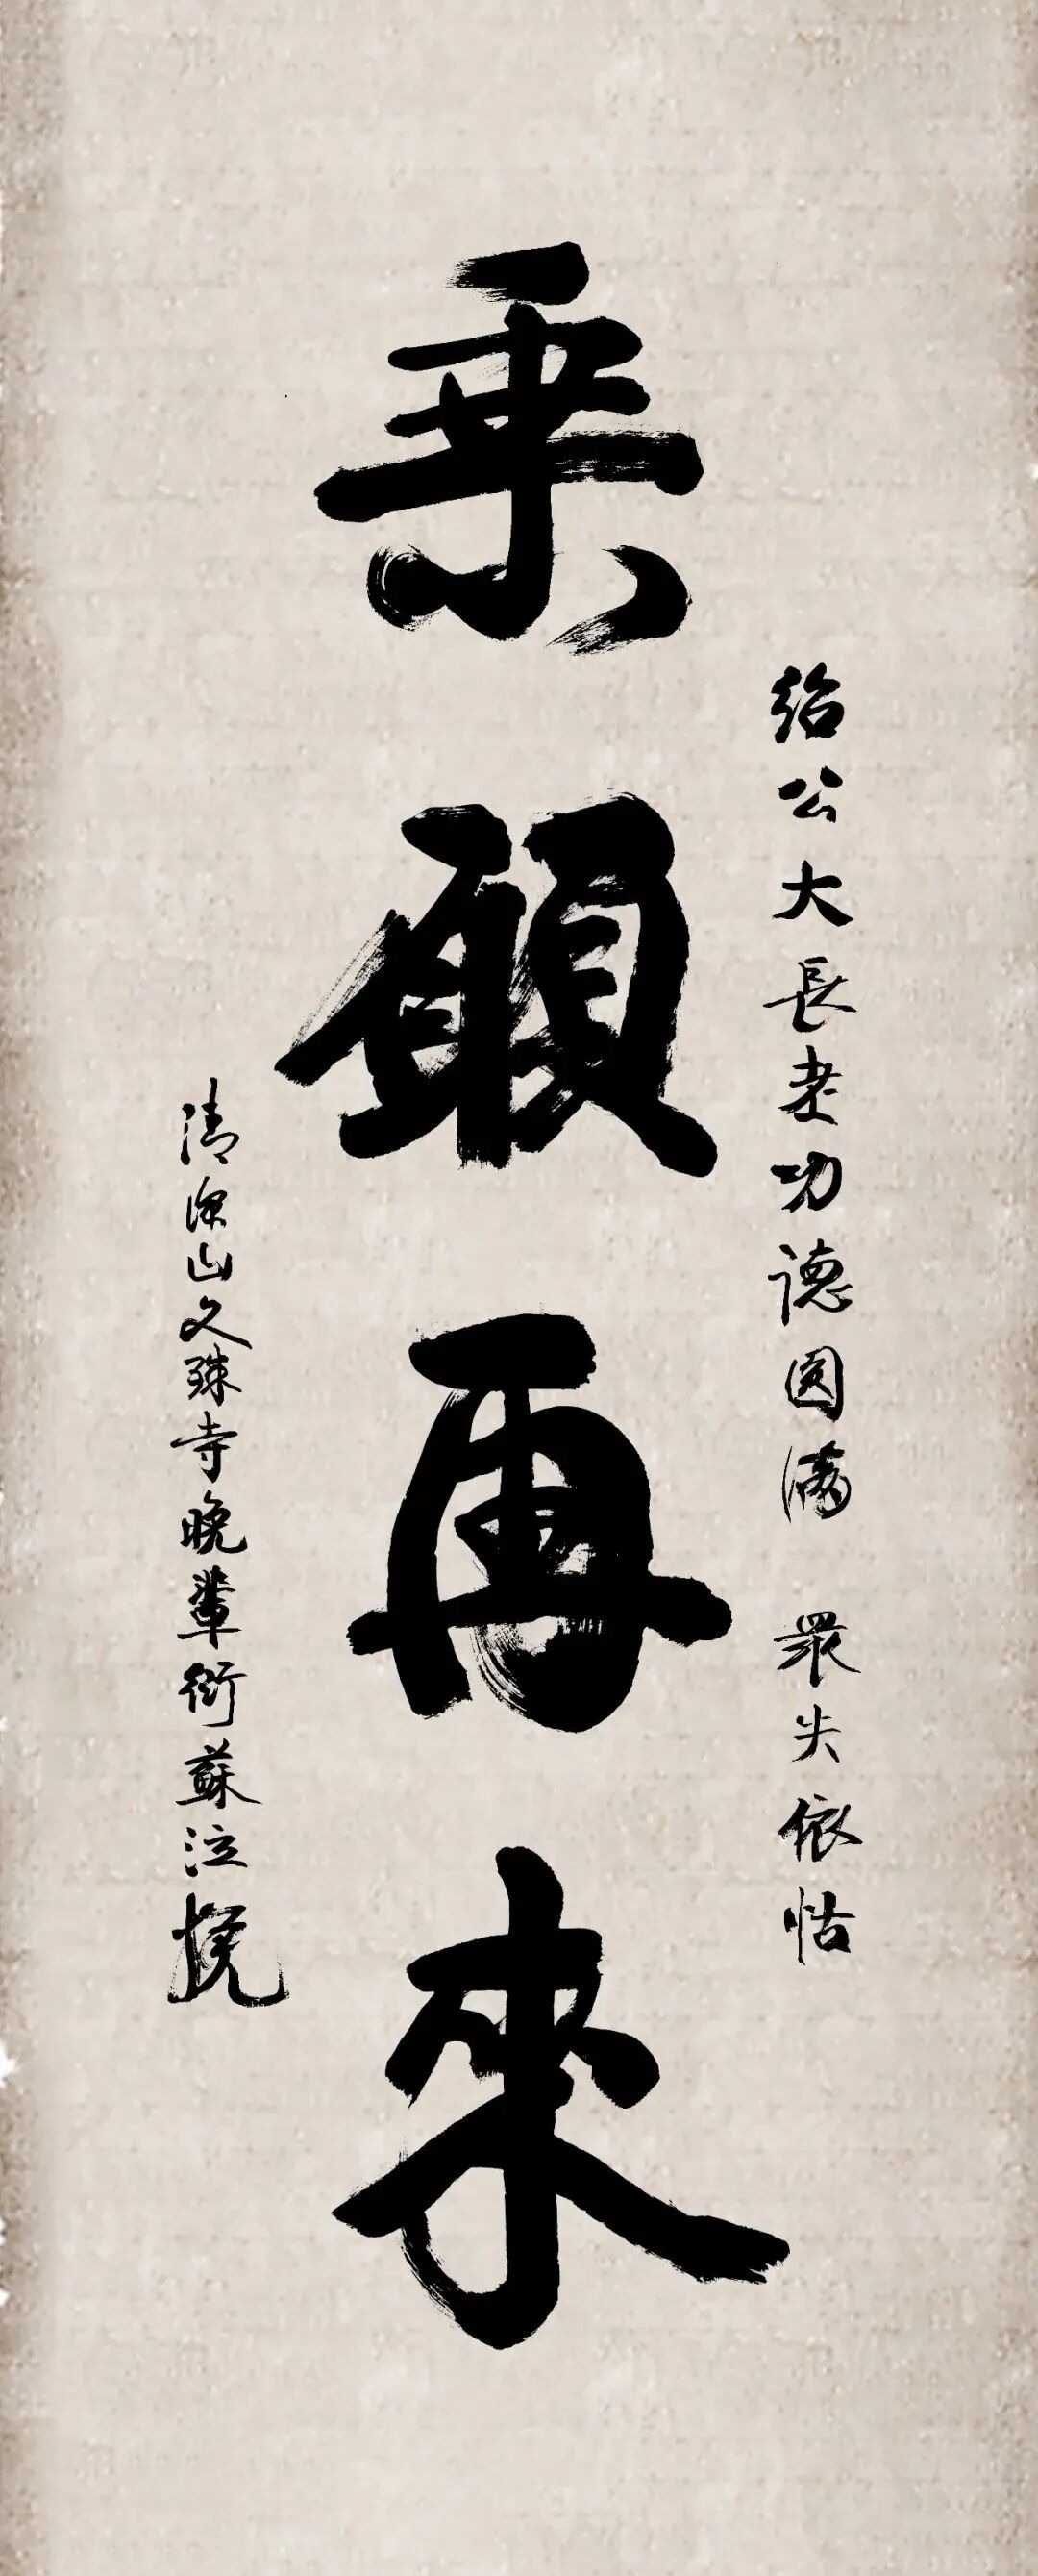 紹公大長老功德圓滿 眾失依怙
乘願再來
清涼山文殊寺晚輩衍蘇泣挽